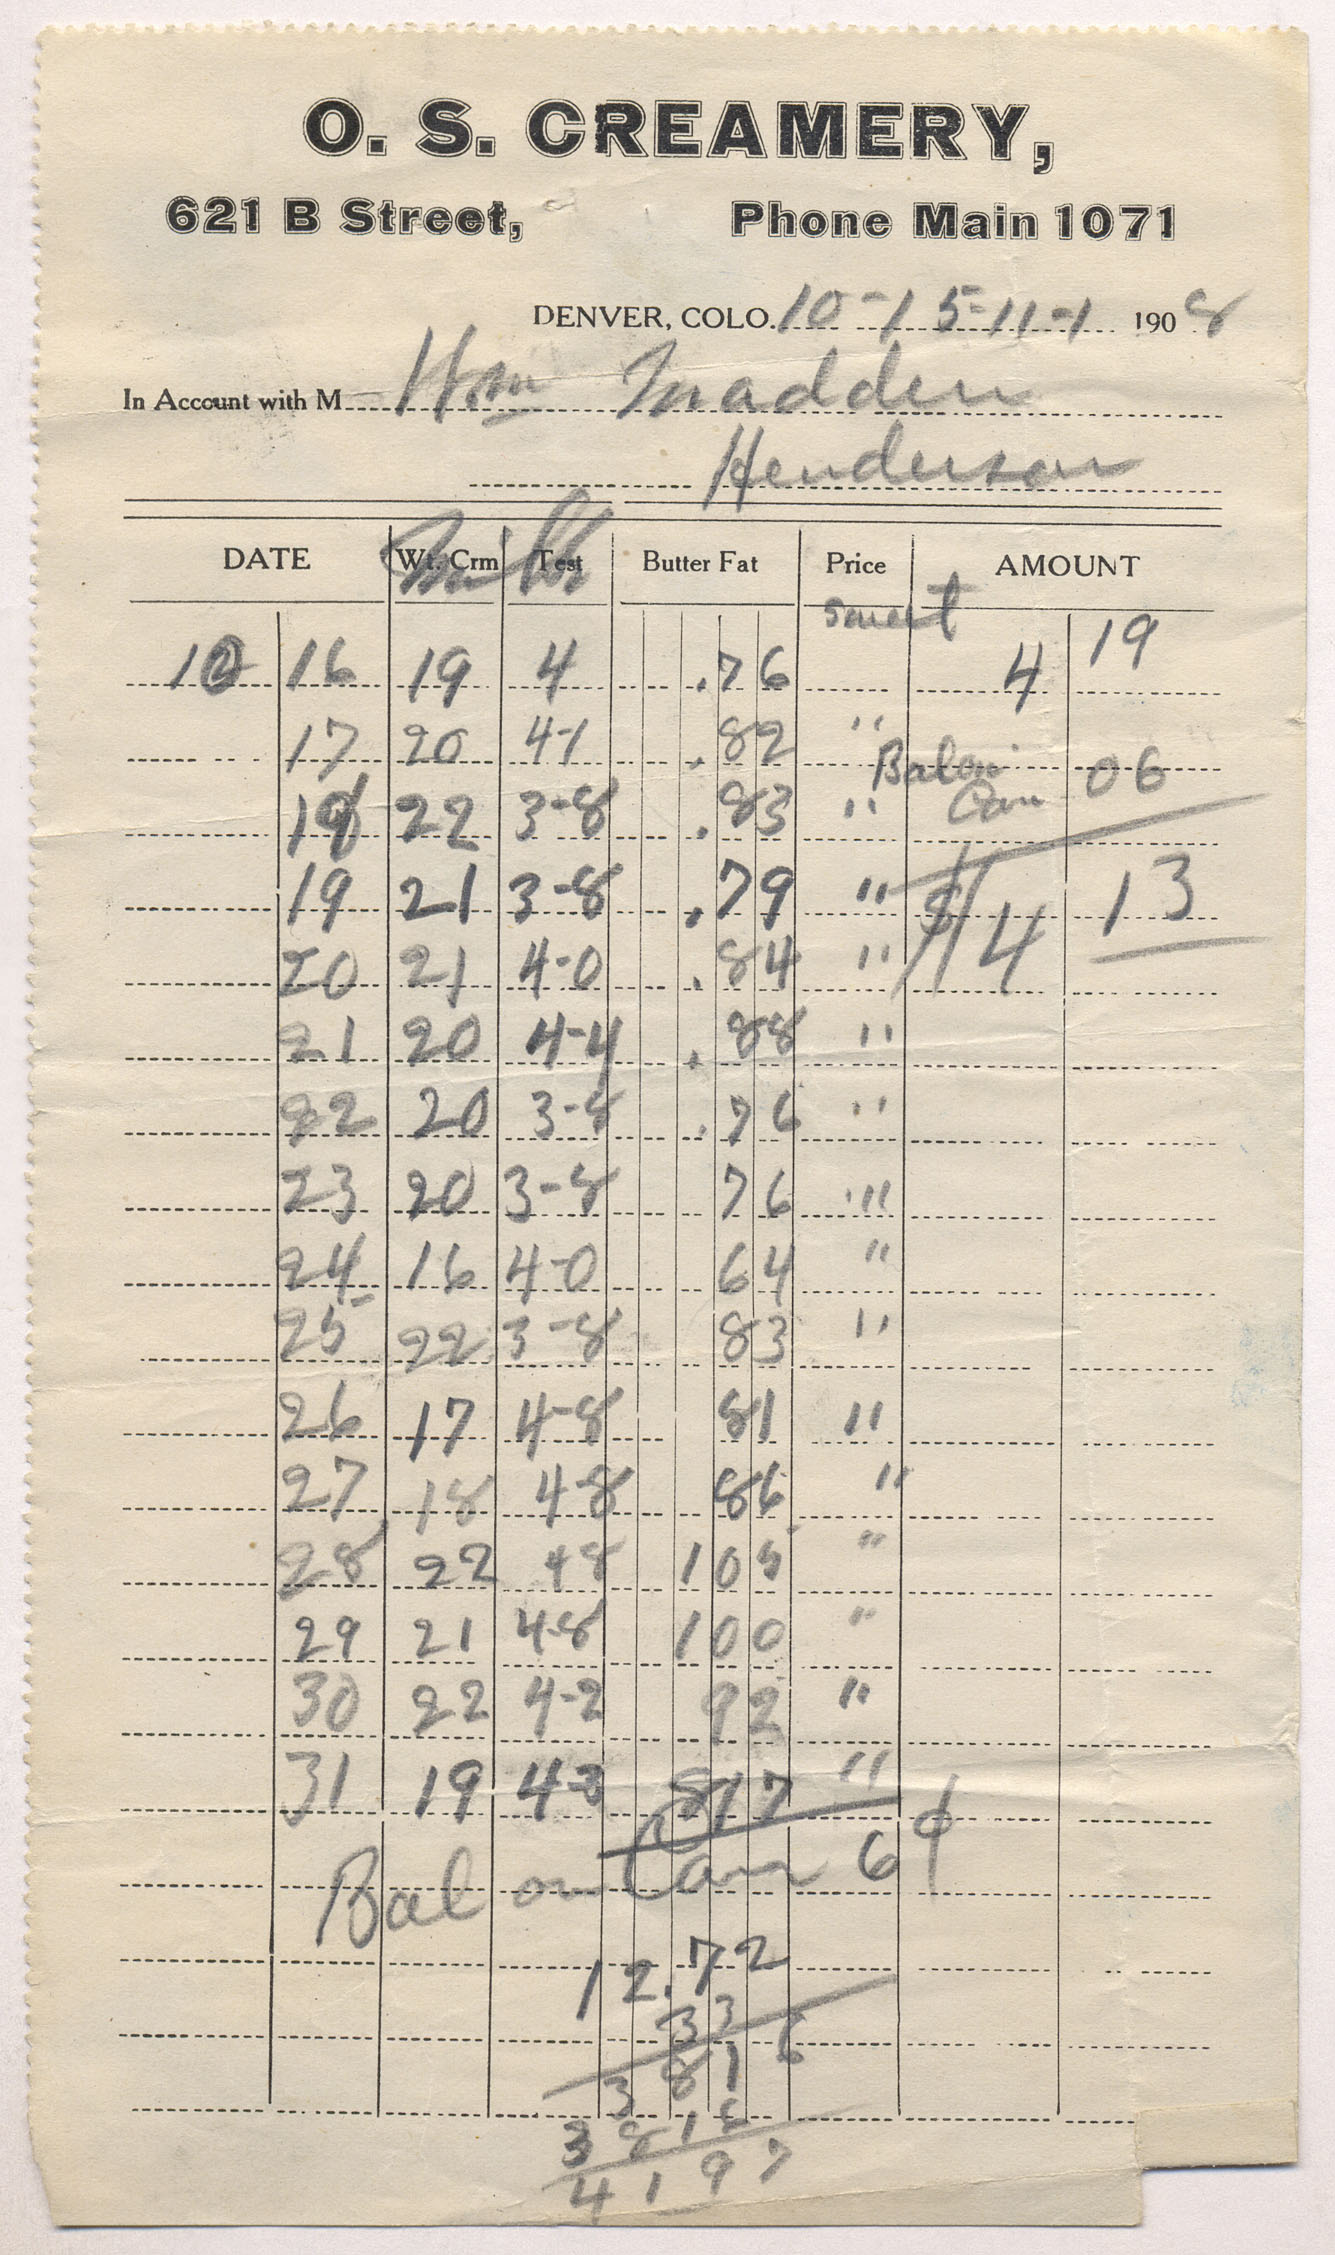 O. S. CREAMERY,
621 B Street, Phone Main 1071
DENVER, COLO. 10-15-11-1 1908
In Account with M Wm Madden
Henderson
Milk
DATE Wt. Crm Test Butter Fat Price AMOUNT
sweet
10 16 19 4 .76 4 19
17 20 4-1 .82 " Bal on 06
18 22 3-8 .83 " Can
19 21 3-8 .79 " $4 13
20 21 4-0 .84 "
21 20 4-4 .88 "
22 20 3-8 .76 "
23 20 3-8 76 "
24 16 4-0 64 "
25 22 3-8 83 "
26 17 4-8 81 "
27 18 4-8 86 "
28 22 48 105 "
29 21 4-8 100 "
30 22 4-2 92 "
31 19 4-3 817 "
Bal on Can 6¢
12.72
33
3816
3816
4197